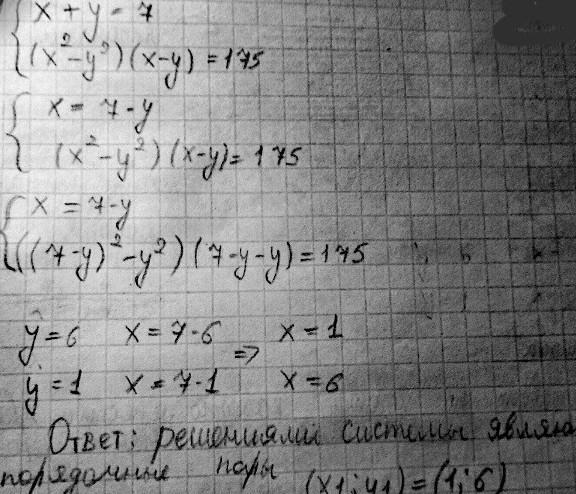 x + y = 7
(x² - y²)(x-y) = 175
x = 7 - y
(x² - y²)(x-y) = 175
x = 7-y
((7-y)² - y²)(7-y-y) = 175
y = 6 x = 7-6 ⇒ x = 1
y = 1 x = 7-1 x = 6
Ответ: решениями системы являю
порядочные пары (x1; y1) = (1; 6)